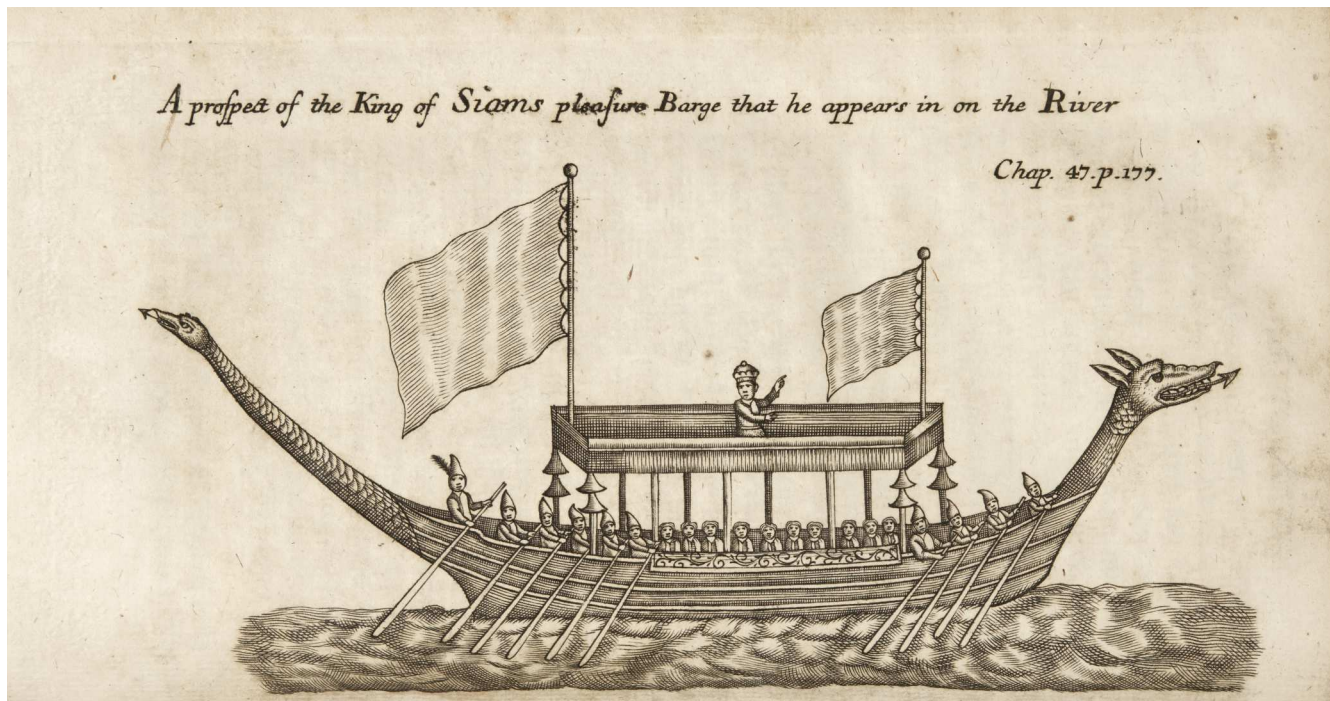 A proſpect of the King of Siams pleaſure Barge that he appears in on the River
Chap. 47. p. 177.